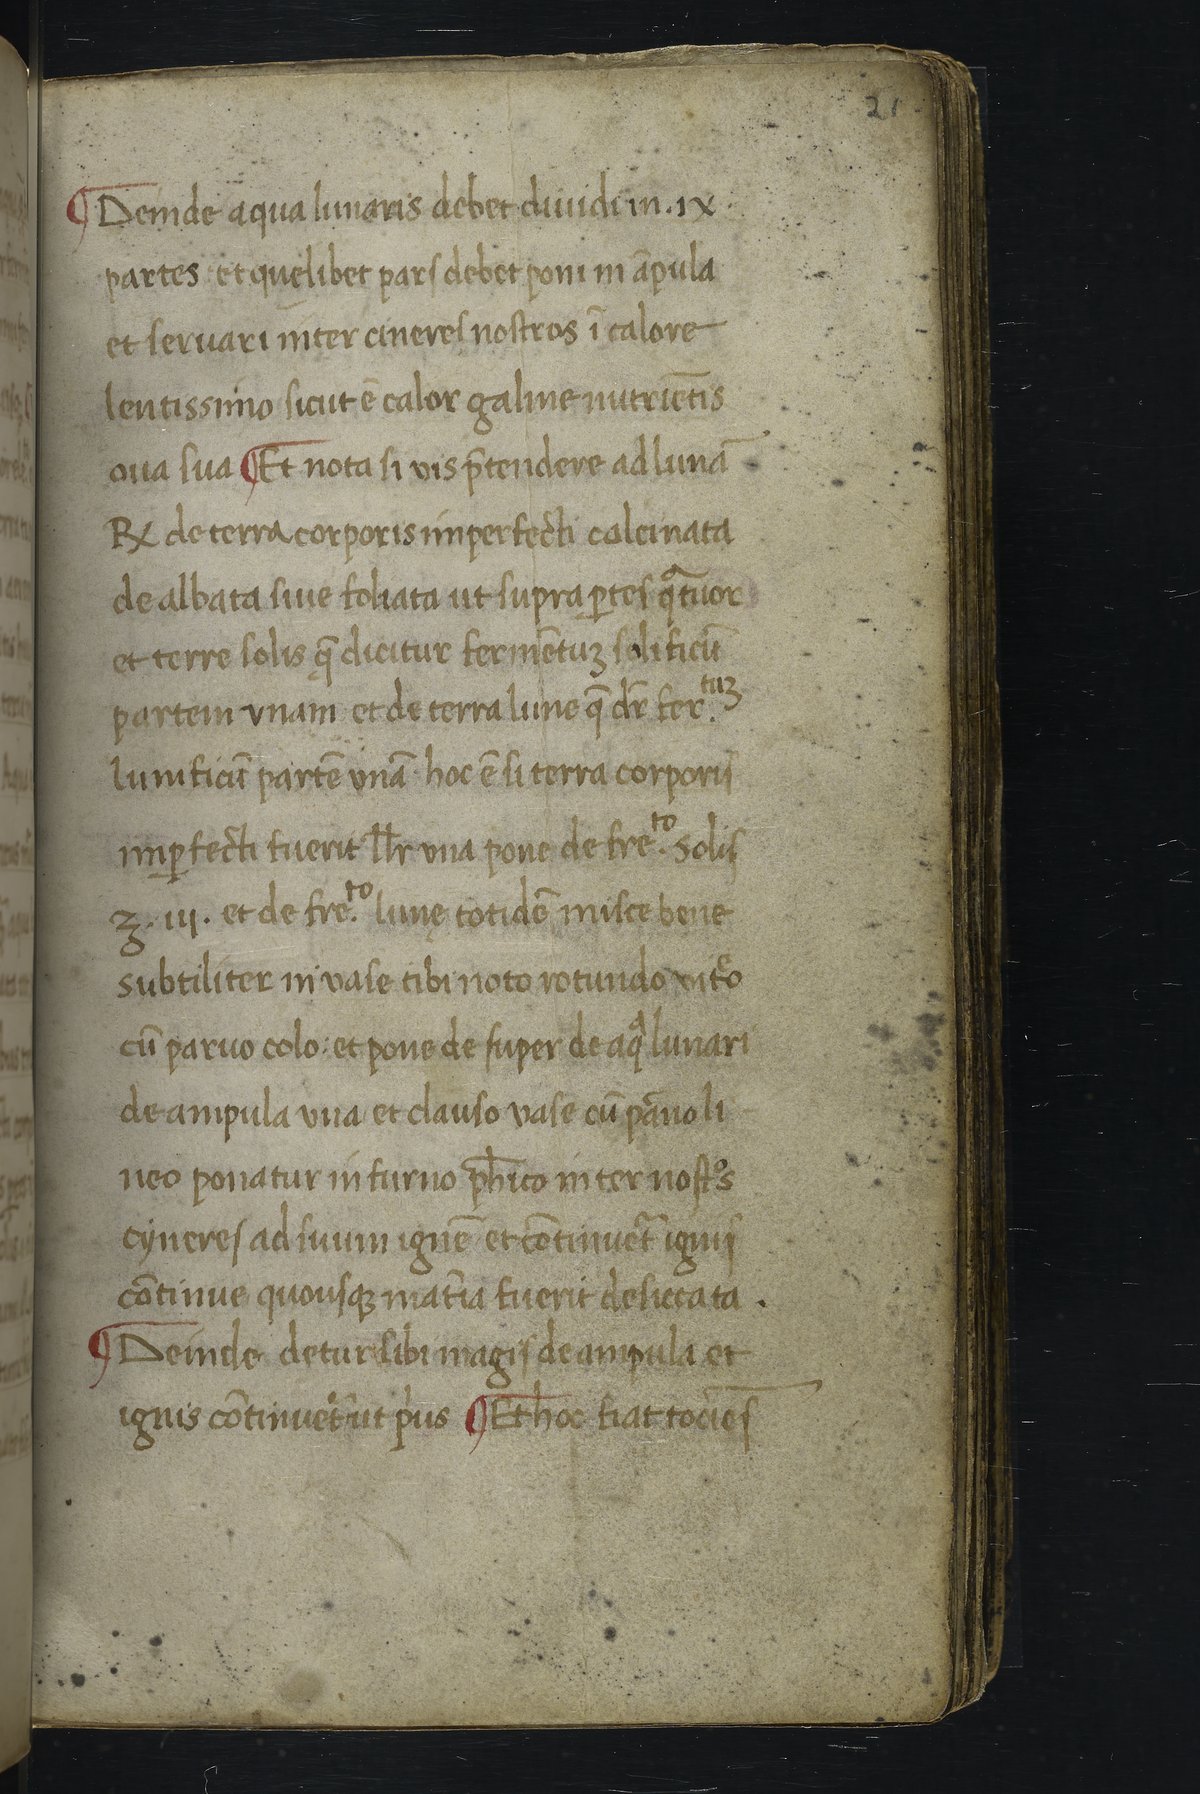 21
¶ Deinde aqua lunaris debet diuidi in .ix
partes et quelibet pars debet poni in āpula
et seruari inter cineres nostros ī calore
lentissimo sicut ē calor galine nutriētis
oua sua ¶ Et nota si vis p̄tendere ad lunā
R̷ de terra corporis imperfecti calcinata
de albata siue foliata ut supra ꝑtes qᵃtuor
et terre solis q̄ dicitur fermētuꝫ solificū
partem vnam et de terra lune q̄ dr̄ fer.ᵗᵘꝫ
lunificū partē vnā hoc ē si terra corporis
imꝑfecti fuerit ll̄r vna pone de fre.ᵗᵒ Solis
ʒ. iij. et de fre.ᵗᵒ lunę totidē misce bene
subtiliter in vase tibi noto rotundo vitᵉo
cū paruo colo: et pone de super de aqᵃ lunari
de ampula vna et clauso vase cū pāno li
neo ponatur in furno ph̄ico inter nostᵒs
cyneres ad suum ignē et cōtinuet᷑ ignis
cōtinue quousqꝫ mat̄ia fuerit desiccata .
¶ Deinde detur sibi magis de ampula et
ignis cōtinuet᷑ ut pⁱus ¶ Et hoc fiat tociēs